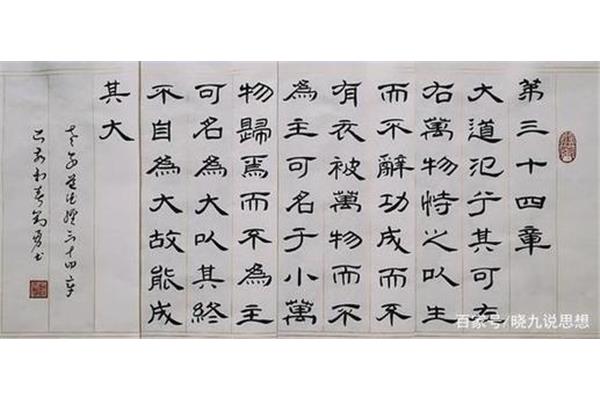 第三十四章
大道氾兮其可左
右萬物恃之以生
而不辭功成而不
有衣被萬物而不
為主可名于小萬
物歸焉而不為主
可名為大以其終
不自為大故能成
其大
老子道德經三十四章
初春
百家号/晓九说思想